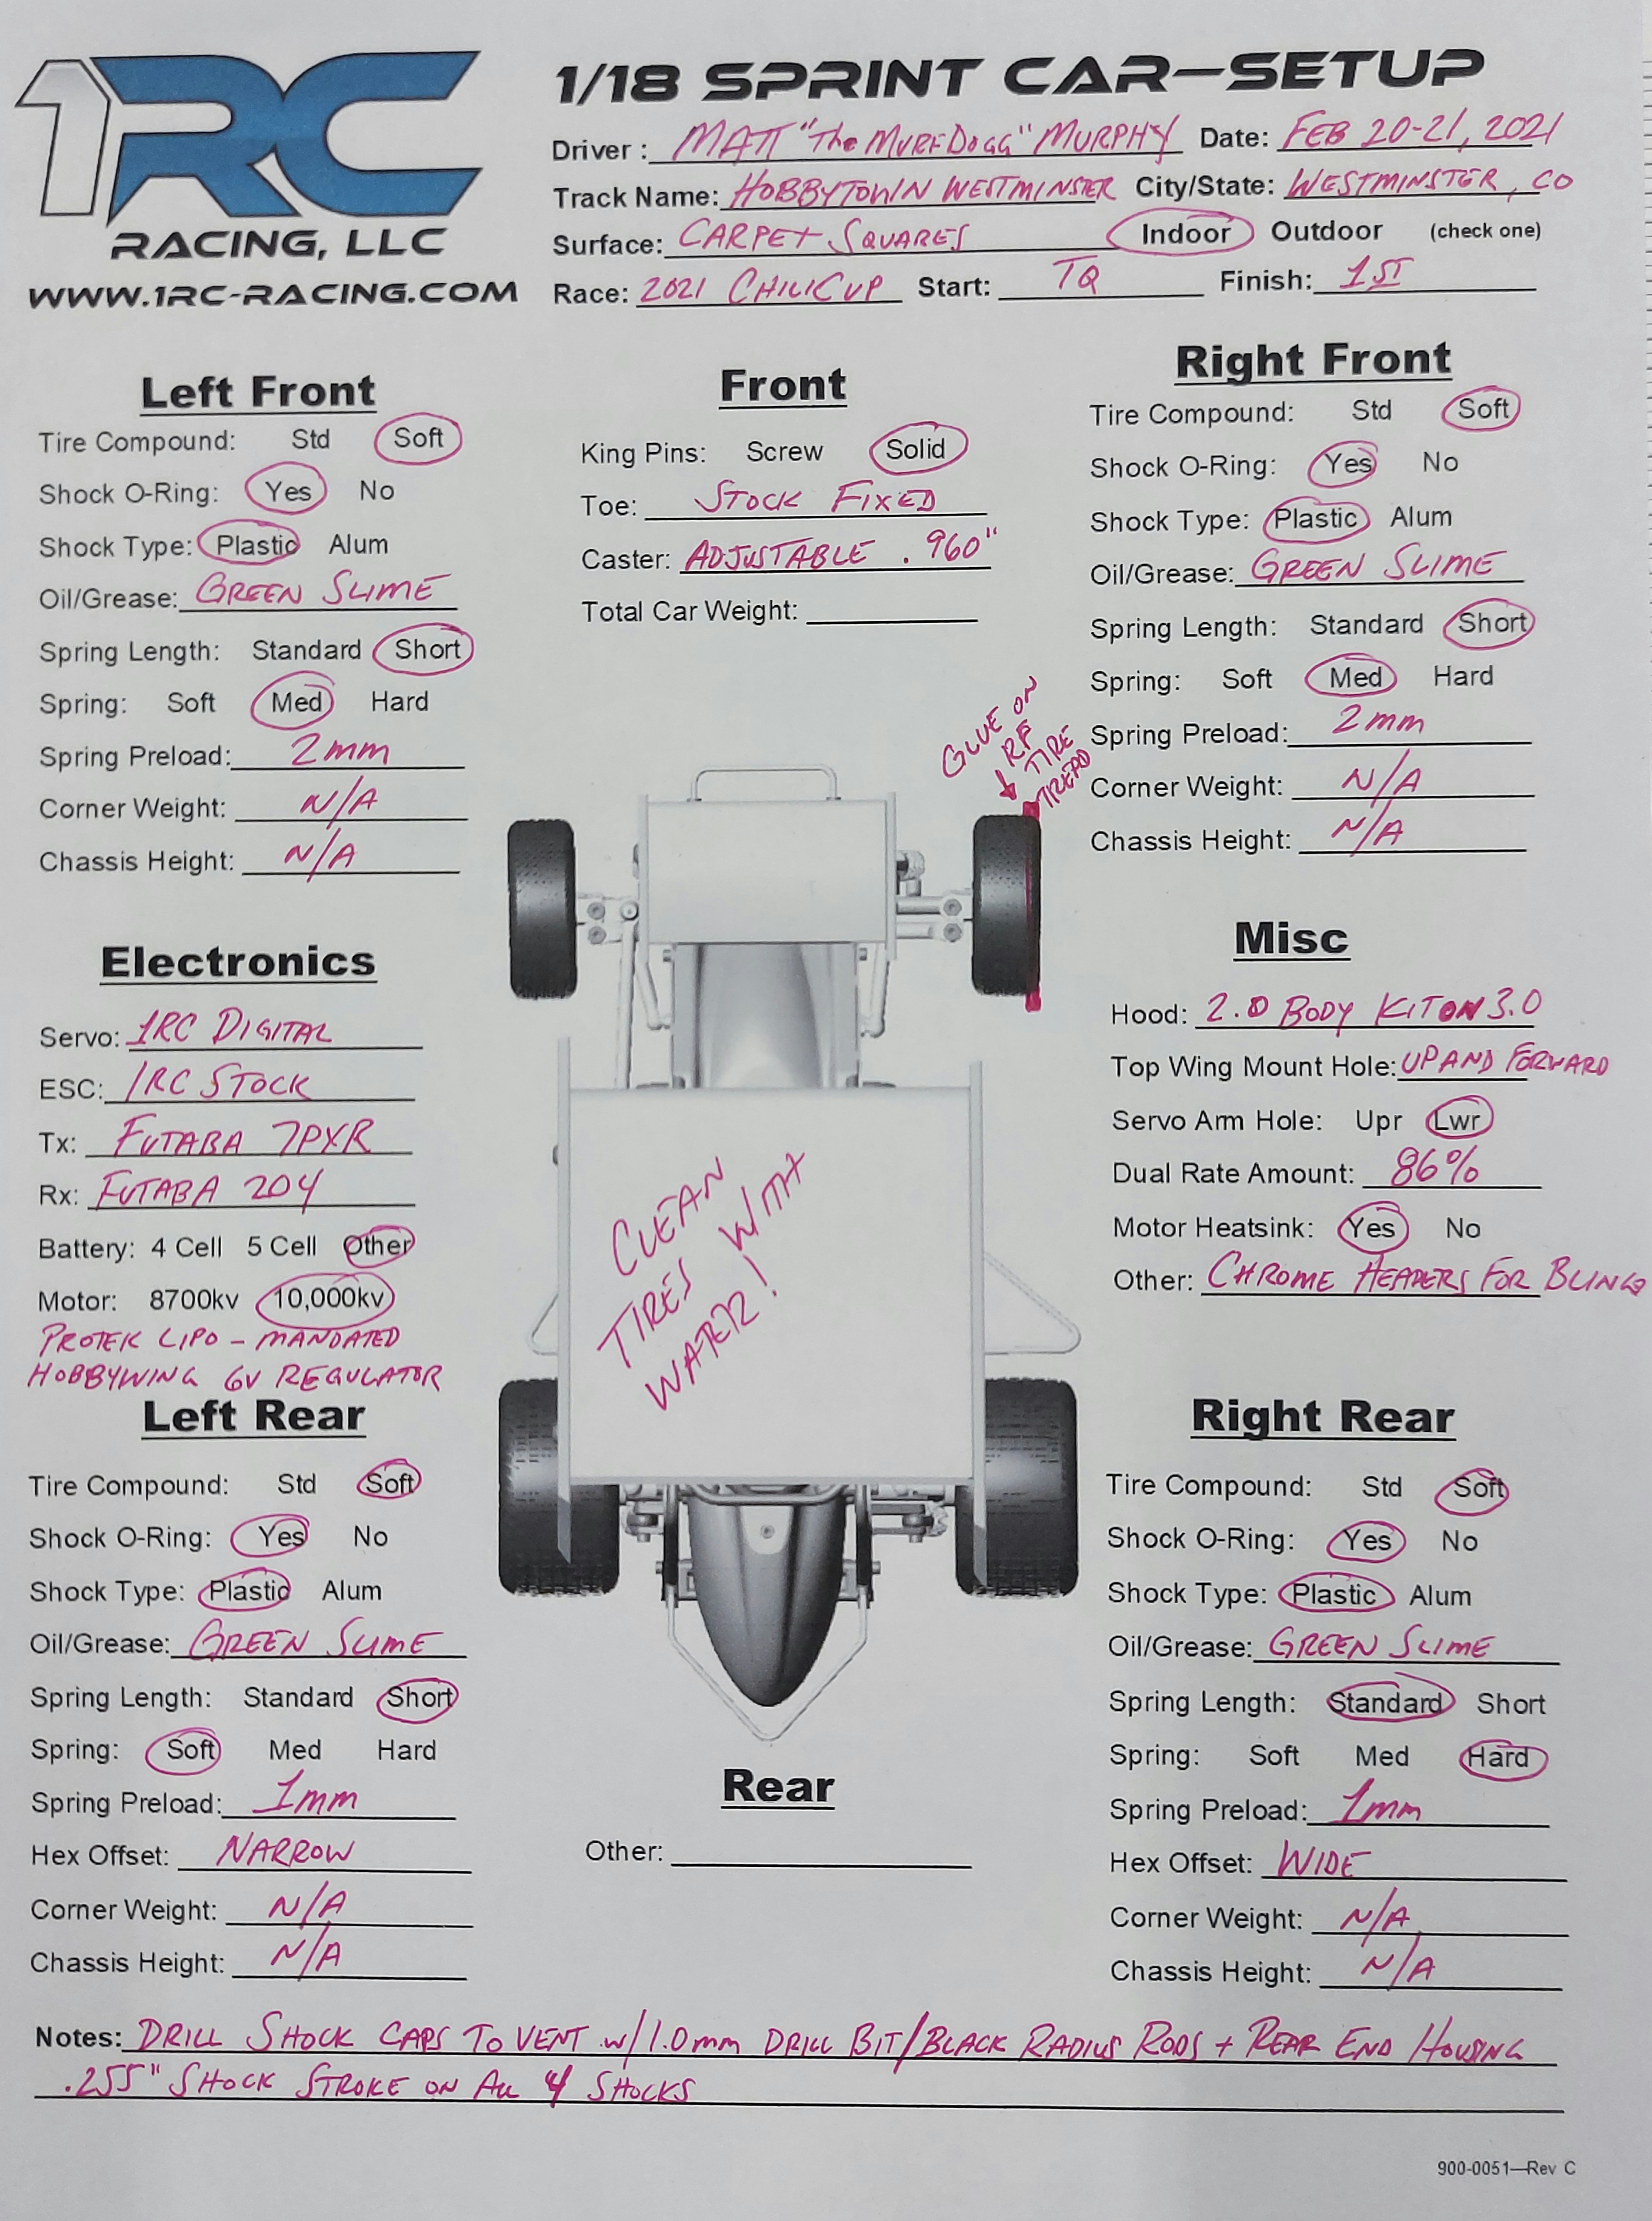 1RC
RACING, LLC
WWW.1RC-RACING.COM
1/18 SPRINT CAR—SETUP
Driver : MATT "The MURFDOGG" MURPHY Date: FEB 20-21, 2021
Track Name: HOBBYTOWN WESTMINSTER City/State: WESTMINSTER, CO
Surface: CARPET SQUARES Indoor Outdoor (check one)
Race: 2021 CHILICUP Start: TQ Finish: 1ST
Left Front
Tire Compound: Std Soft
Shock O-Ring: Yes No
Shock Type: Plastic Alum
Oil/Grease: GREEN SLIME
Spring Length: Standard Short
Spring: Soft Med Hard
Spring Preload: 2mm
Corner Weight: N/A
Chassis Height: N/A
Front
King Pins: Screw Solid
Toe: STOCK FIXED
Caster: ADJUSTABLE .960"
Total Car Weight:
Right Front
Tire Compound: Std Soft
Shock O-Ring: Yes No
Shock Type: Plastic Alum
Oil/Grease: GREEN SLIME
Spring Length: Standard Short
Spring: Soft Med Hard
Spring Preload: 2mm
Corner Weight: N/A
Chassis Height: N/A
GLUE ON
RF
TIRE
TREAD
Electronics
Servo: 1RC DIGITAL
ESC: 1RC STOCK
Tx: FUTABA 7PXR
Rx: FUTABA 204
Battery: 4 Cell 5 Cell Other
Motor: 8700kv 10,000kv
PROTEK LIPO - MANDATED
HOBBYWING 6V REGULATOR
CLEAN
TIRES WITH
WATER!
Misc
Hood: 2.0 BODY KIT ON 3.0
Top Wing Mount Hole: UP AND FORWARD
Servo Arm Hole: Upr Lwr
Dual Rate Amount: 86%
Motor Heatsink: Yes No
Other: CHROME HEADERS FOR BLING
Left Rear
Tire Compound: Std Soft
Shock O-Ring: Yes No
Shock Type: Plastic Alum
Oil/Grease: GREEN SLIME
Spring Length: Standard Short
Spring: Soft Med Hard
Spring Preload: 1mm
Hex Offset: NARROW
Corner Weight: N/A
Chassis Height: N/A
Rear
Other:
Right Rear
Tire Compound: Std Soft
Shock O-Ring: Yes No
Shock Type: Plastic Alum
Oil/Grease: GREEN SLIME
Spring Length: Standard Short
Spring: Soft Med Hard
Spring Preload: 1mm
Hex Offset: WIDE
Corner Weight: N/A
Chassis Height: N/A
Notes: DRILL SHOCK CAPS TO VENT w/1.0mm DRILL BIT/BLACK RADIUS RODS + REAR END HOUSING
.255" SHOCK STROKE ON ALL 4 SHOCKS
900-0051—Rev C